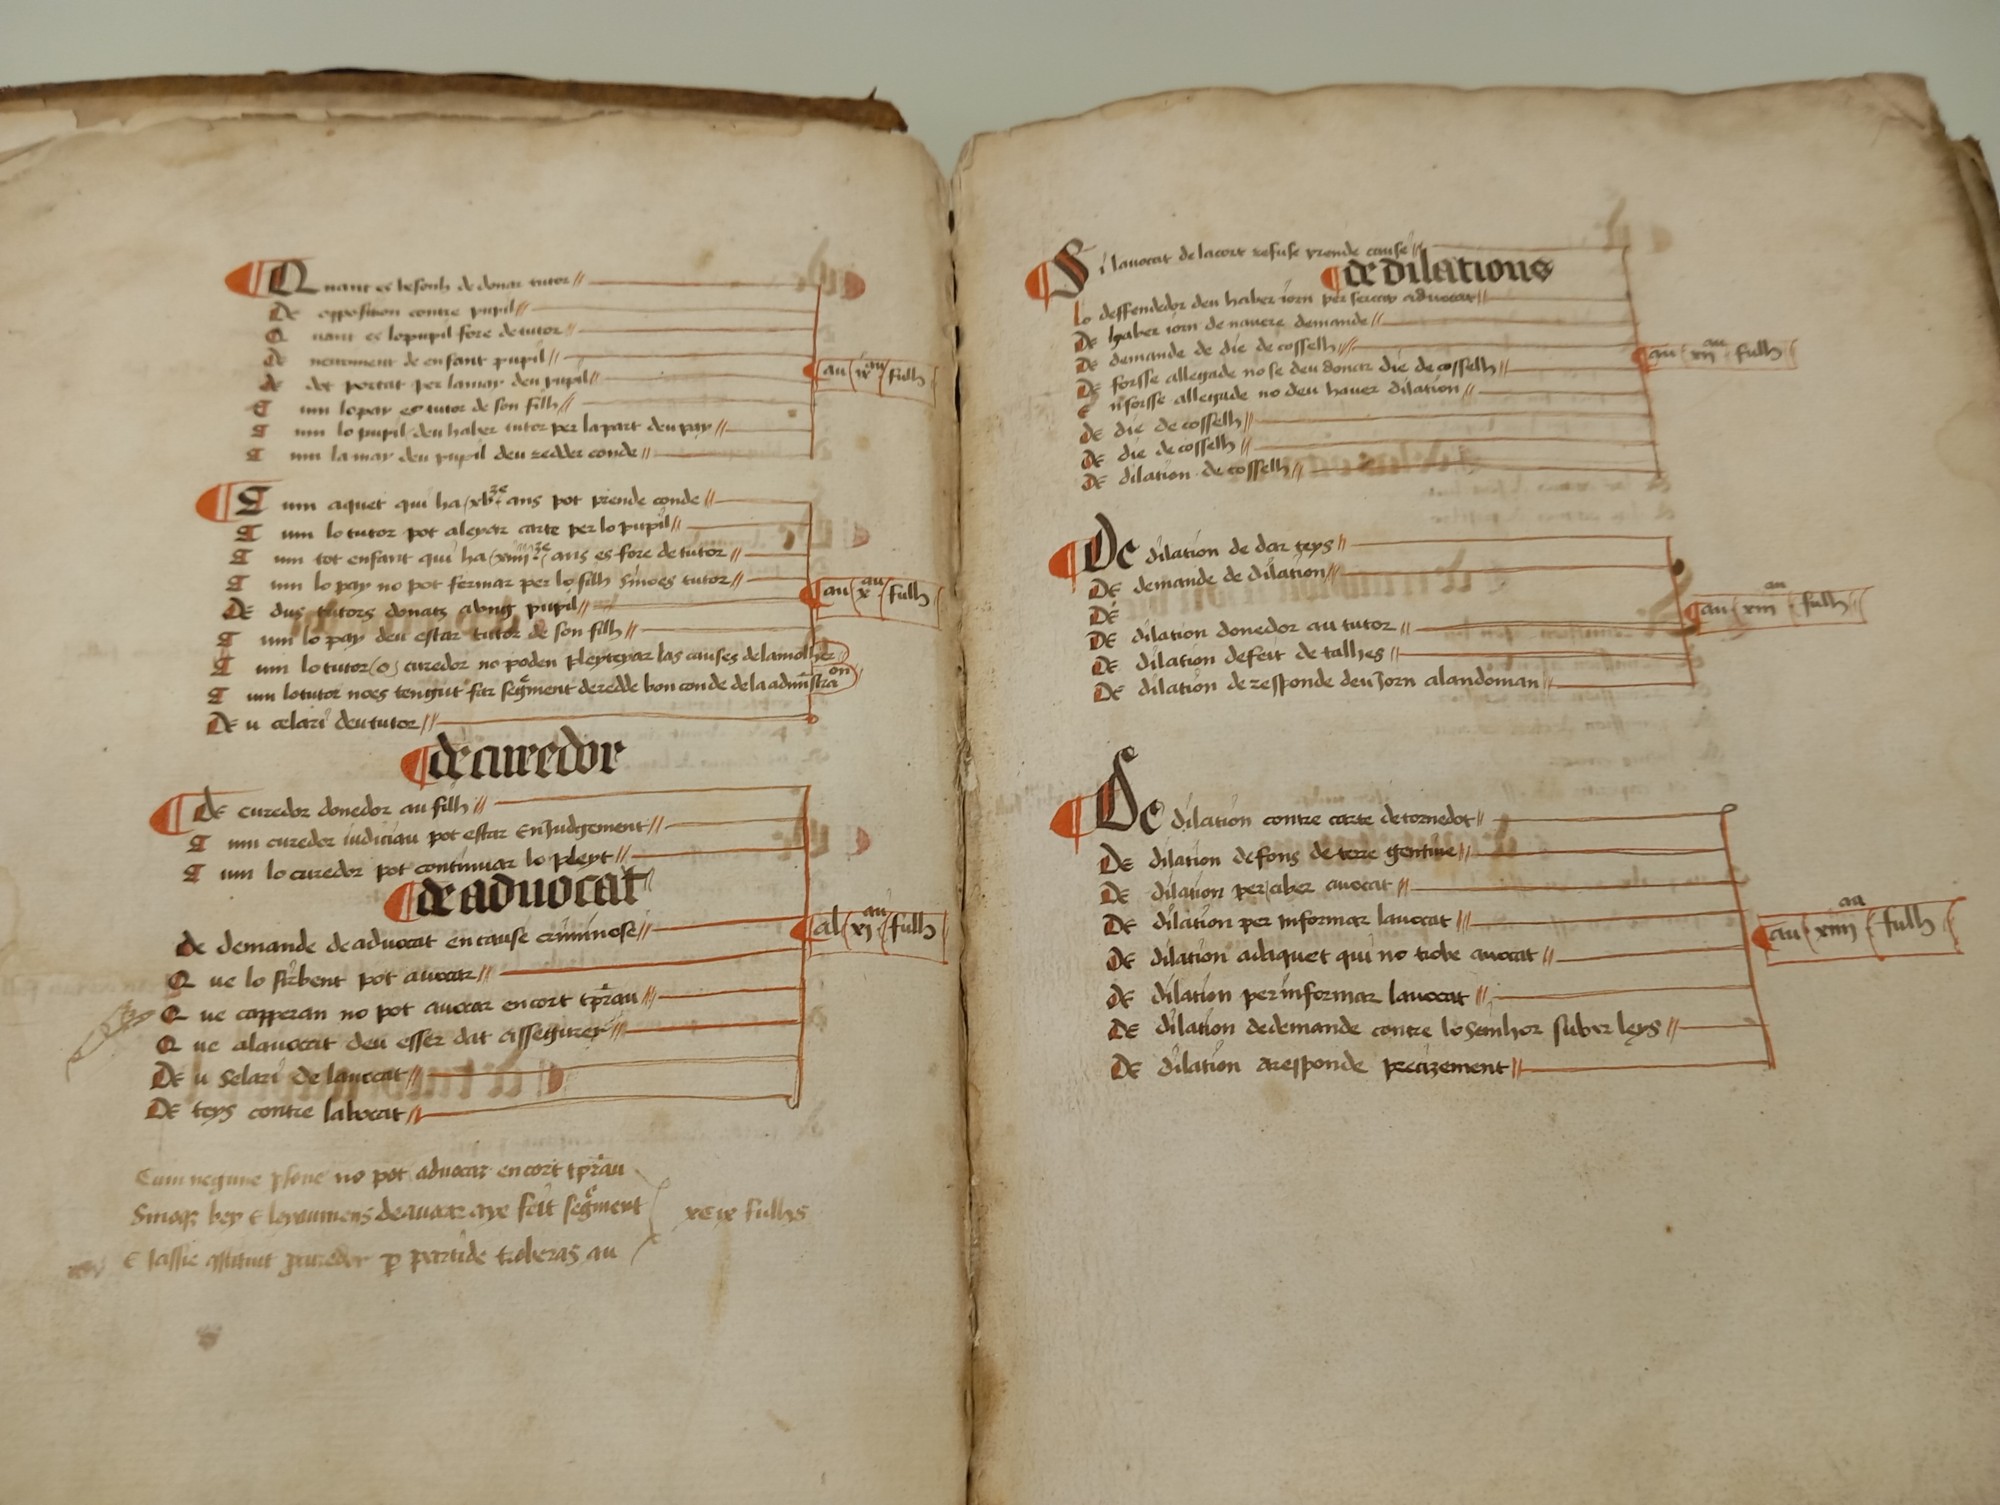 Quant es besonh de donar tutor//
De opposition contre pupil//
Quant es lo pupil fore de tutor//
De neuriment de enfant pupil//
De dot portat per la may deu pupil//
Cum lo pay es tutor de son filh//
Cum lo pupil deu haber tutor per la part deu pay//
Cum la may deu pupil deu redder conde//
au ix au fulh
Cum aquet qui ha xv ze ans pot prende conde//
Cum lo tutor pot alevar carte per lo pupil//
Cum tot enfant qui ha xiiii ze ans es fore de tutor//
Cum lo pay no pot fermar per lo filh sinoes tutor//
De dus tutors donatz a ung pupil//
Cum lo pay deu estar tutor de son filh//
Cum lo tutor (o) curedor no poden pleyteyar las causes de la molher//
Cum lo tutor noes tengut far segment de redde bon conde de la administraon//
De u celari deu tutor//
au x au fulh
de curedor
De curedor donedor au filh//
Cum curedor iudiciau pot estar en Judgement//
Cum lo curedor pot continuar lo pleyt//
de advocat
de demande de advocat en cause criminose//
Que lo sirbent pot avocar//
Que capperan no pot avocar en cort tprau//
Que alavocat deu esser dat assegurer//
De u selari de lavocat//
De teys contre labocat//
al xi au fulh
Cum negune psone no pot advocar en cort tprau
Sinoqz bey e leyaumens de avocar aye feit segment
E lassie procuredor p partide troberas au
xcix fulhs
Si lavocat de la cort refuse prende cause//
de dilations
Lo deffendedor deu haber iorn per sercar advocat//
De haber iorn de nauere demande//
De demande de die de cosselh//
De forsse allegade no se deu donar die de cosselh//
En forsse allegade no deu haver dilation//
De die de cosselh//
De die de cosselh//
De dilation de cosselh//
au xii au fulh
De dilation de dar teys//
De demande de dilation//
De
De dilation donedor au tutor//
De dilation defeit de talhes//
De dilation de responde deu Jorn alandoman//
au xiii au fulh
De dilation contre carte de tornedot//
De dilation de fons de terre gentiue//
De dilation per aber avocat//
De dilation per informar lavocat//
De dilation adaquet qui no trobe avocat//
De dilation per informar lavocat//
De dilation de demande contre lo senhor suber leys//
De dilation a responde precizement//
au xiiii au fulh